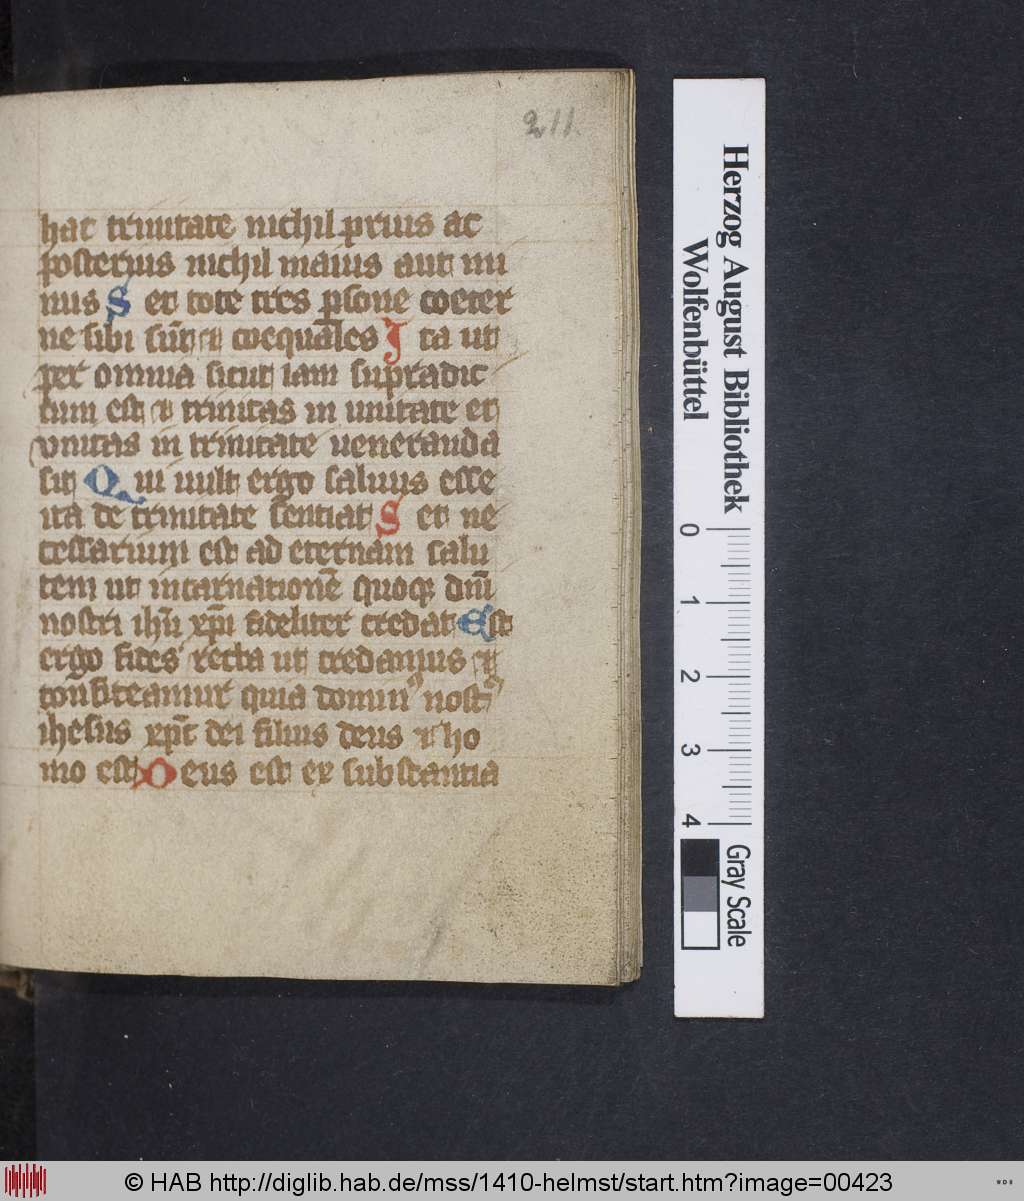 211.
hac trinitate nichil prius ac
posterius nichil maius aut mi
nus S et tote tres psone coeter
ne sibi sūt ⁊ coequales I ta ut
per omnia sicut iam supradic
tum est ⁊ trinitas in unitate et
vnitas in trinitate ueneranda
sit Q ui uult ergo saluus esse
ita de trinitate sentiat S et ne
cessarium est ad eternam salu
tem ut incarnationē quoqꝫ dn̄i
nostri ihū xp̄i fideliter credat Est
ergo fides recta ut credamus ⁊
confiteamur quia dominꝰ nostͬ
ihesus xp̄c dei filius deus ⁊ ho
mo est D eus est ex substantia
Herzog August Bibliothek
Wolfenbüttel
0 1 2 3 4
Gray Scale
© HAB http://diglib.hab.de/mss/1410-helmst/start.htm?image=00423